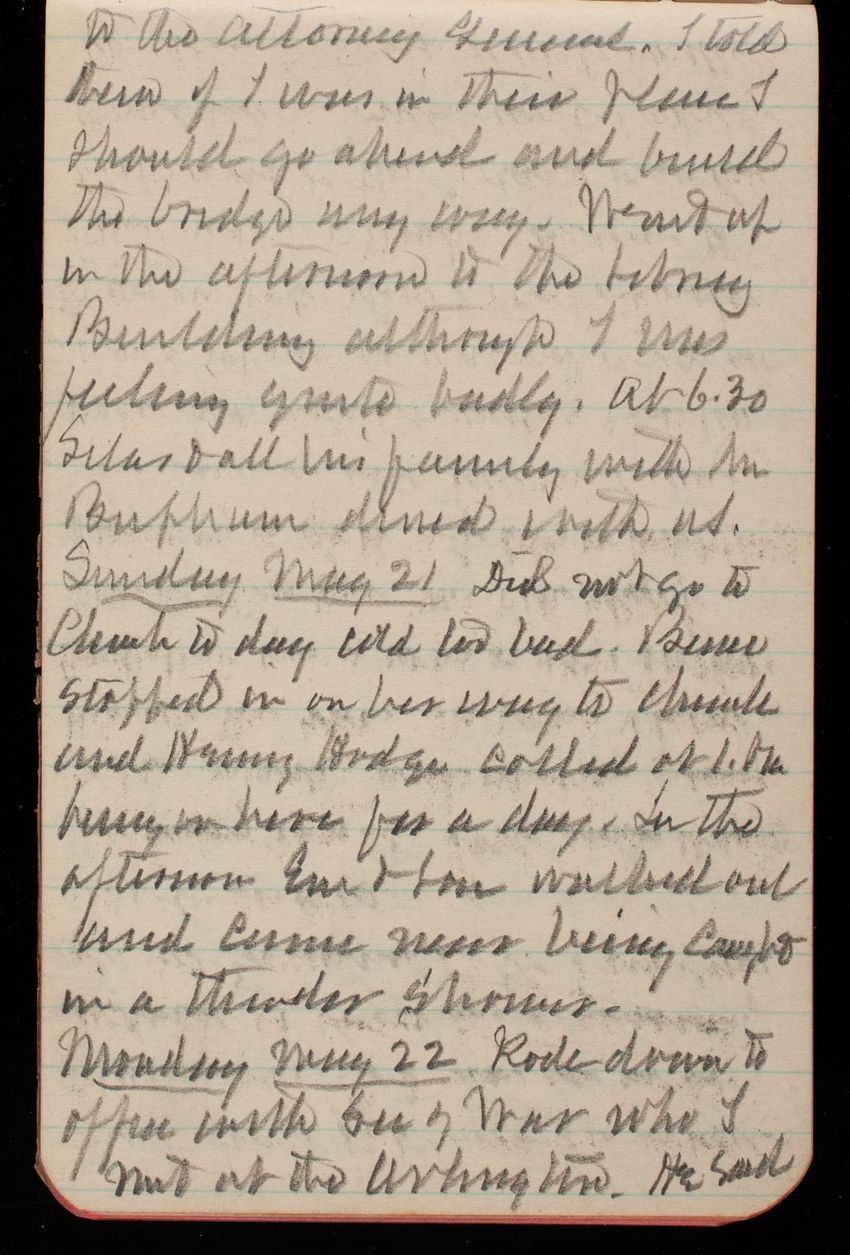 to the Attorney General. I told
them if I was in their place I
should go ahead and build
the bridge any way. Went up
in the afternoon to the Library
Building although I was
feeling quite badly. At 6.30
Silas & all his family with Mr
Buffum dined with us.
Sunday May 21 Did not go to
Church to day cold too bad.
stopped in on her way to church
and Hodge called at 1. Pm
being on here for a day. In the
afternoon Eva & Lou walked out
and came near being caught
in a thunder shower.
Monday May 22 Rode down to
office with Sec of War who I
met at the Arlington. He said